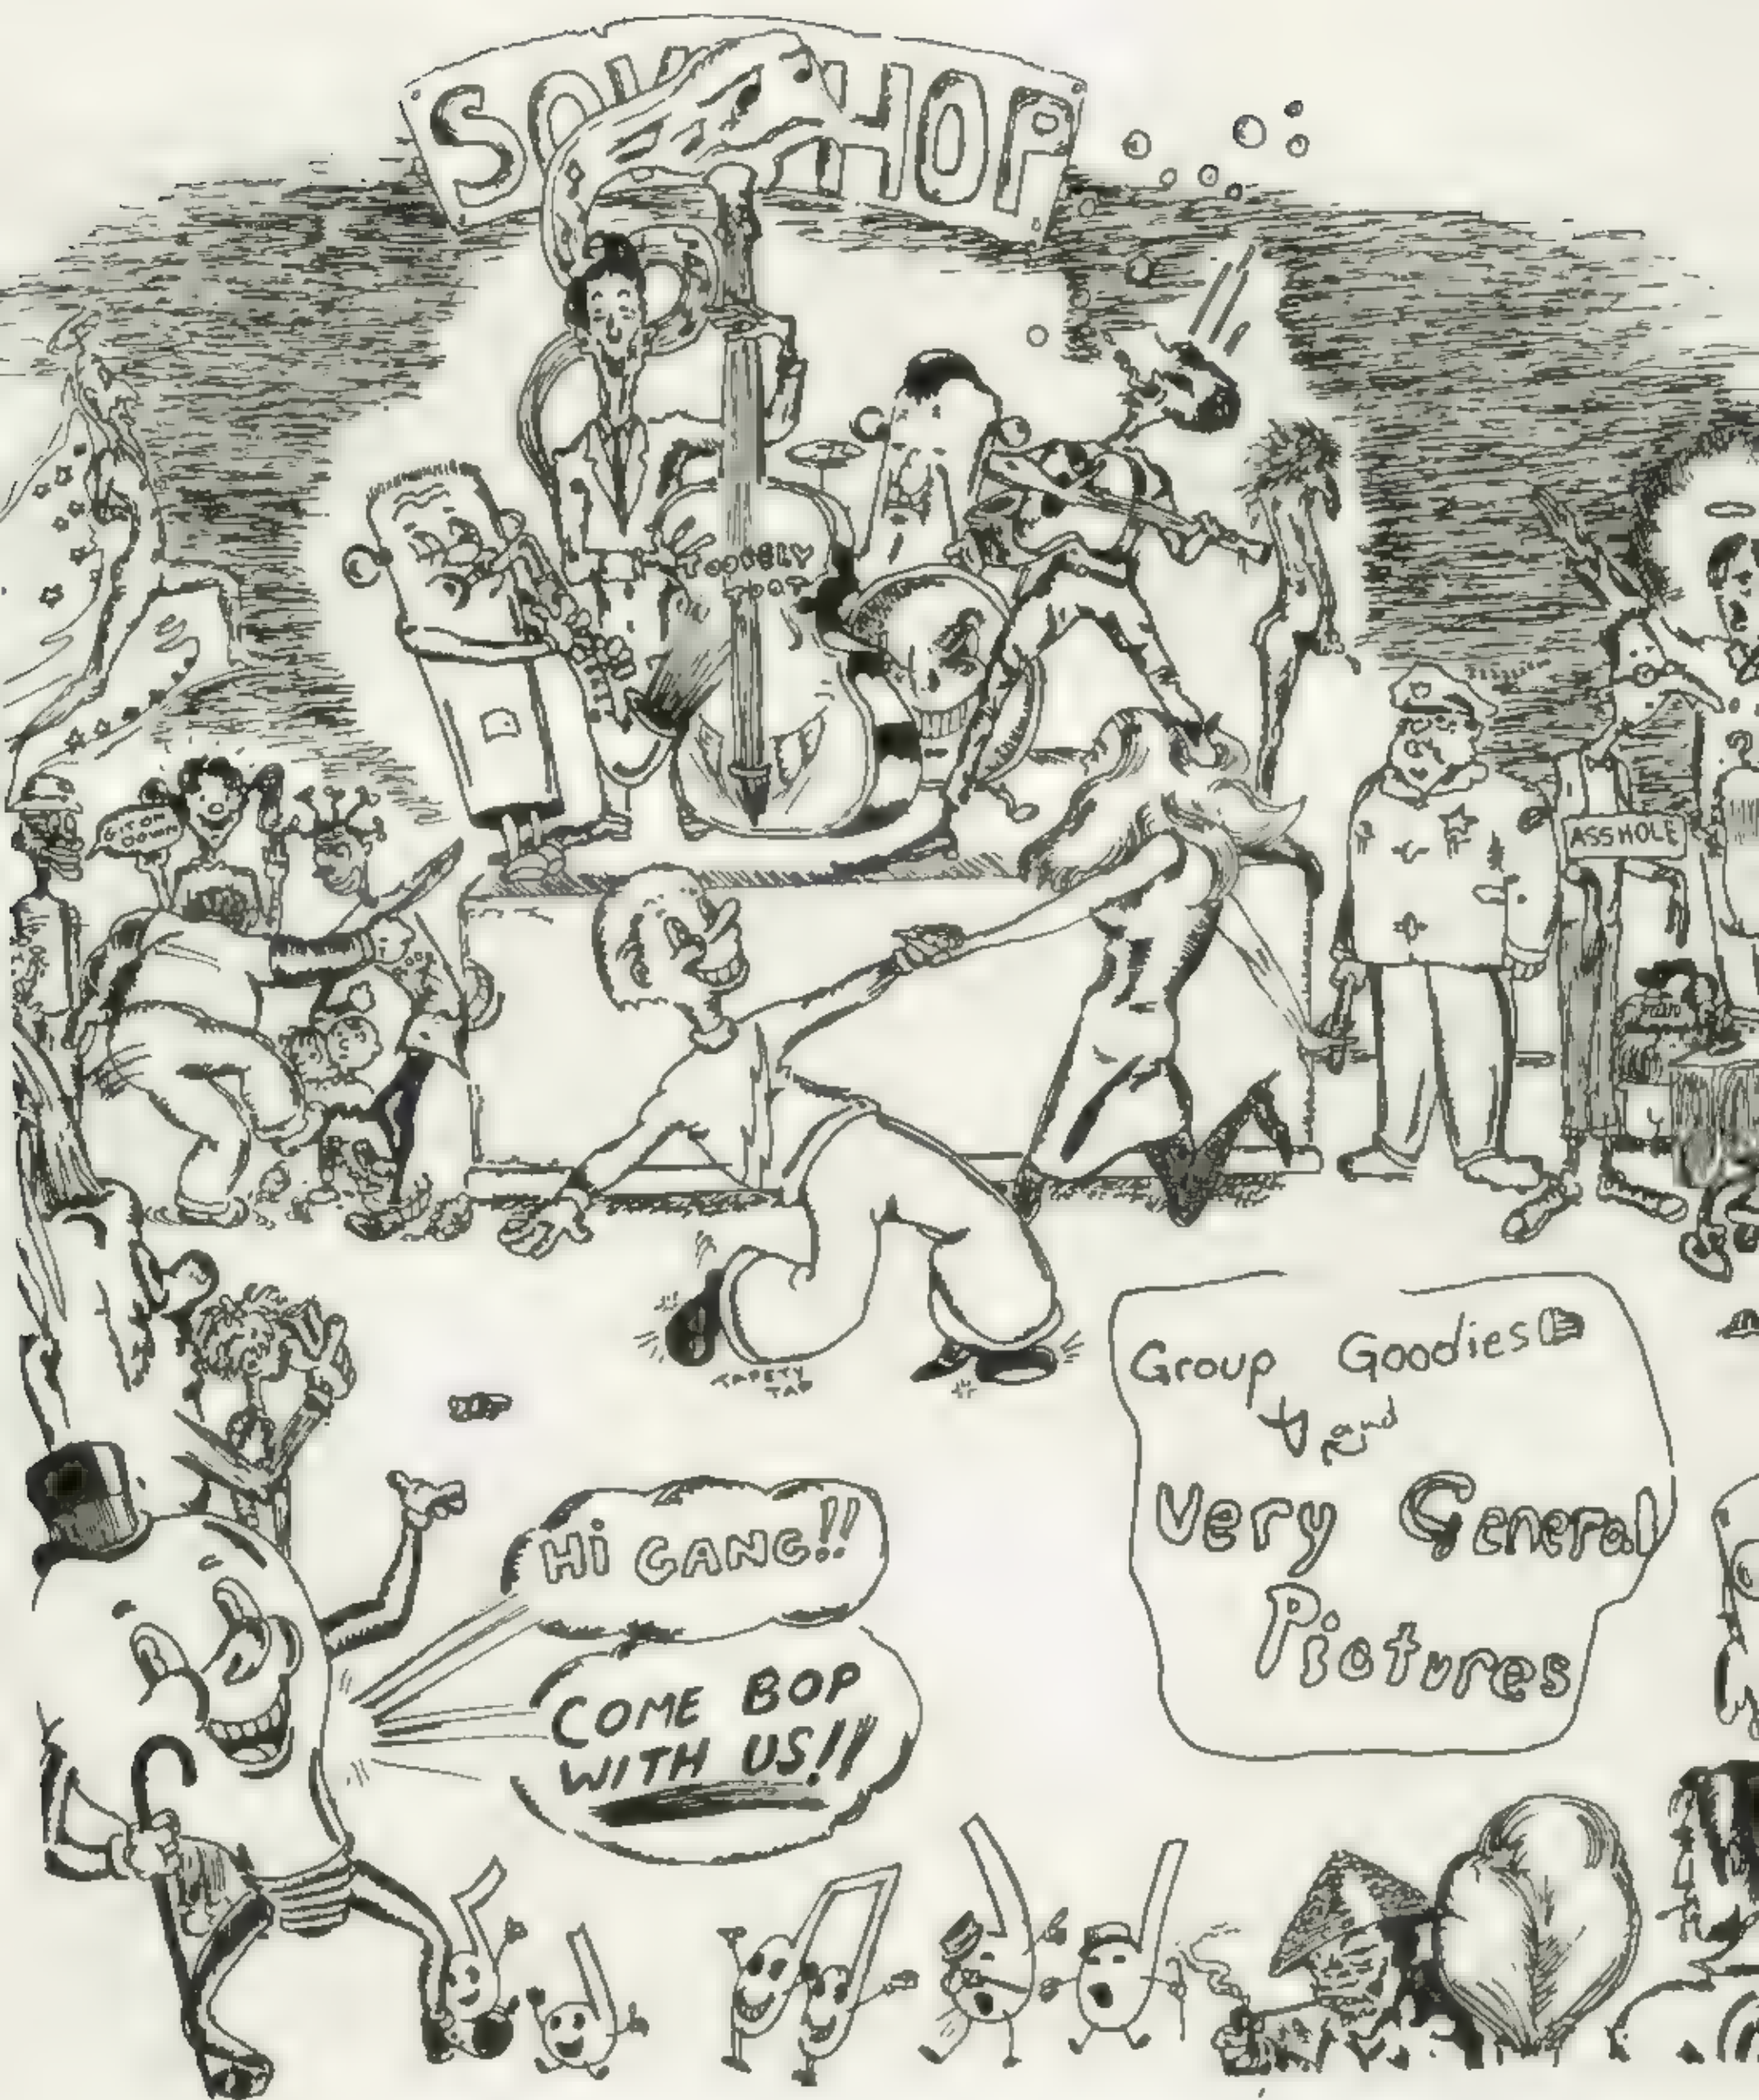 HOP
TOODELY
TOOT
GIT ON
DOWN
ASSHOLE
TAPETY
TAP
Group Goodies
and
Very General
Pictures
Hi GANG!!
COME BOP
WITH US!!